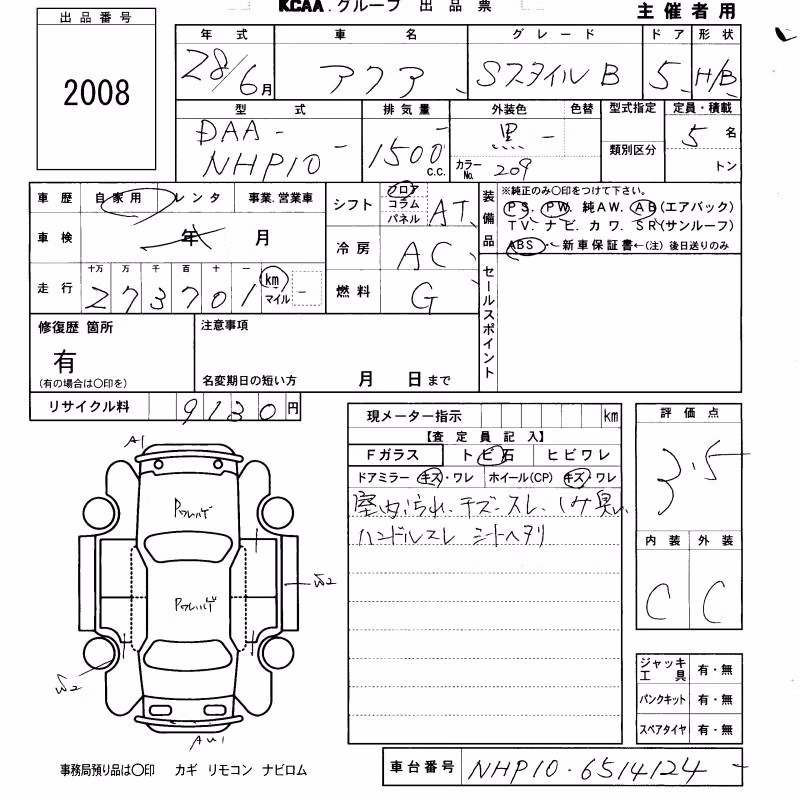 KCAA.グループ 出品票
主催者用
出品番号
2008
年式 車名 グレード ドア 形状
28/6月 アクア Sスタイル B 5 H/B
型式 排気量 外装色 色替 型式指定 定員・積載
DAA-NHP10 1500 c.c. 黒 カラーNo. 209 類別区分 5名 トン
車歴 自家用 レンタ 事業.営業車
車検 年 月
走行 十万 万 千 百 十 一
273701 km マイル
シフト フロア コラム パネル AT
冷房 AC
燃料 G
装備品
※純正のみ○印をつけて下さい。
PS. PW. 純AW. AB(エアバック)
TV. ナビ. カワ. SR(サンルーフ)
ABS ・新車保証書←(注) 後日送りのみ
セールスポイント
修復歴 箇所
有
(有の場合は○印を)
注意事項
名変期日の短い方 月 日まで
リサイクル料 9130円
現メーター指示 km
【査定員記入】
Fガラス トビ石 ヒビワレ
ドアミラー キズ・ワレ ホイール(CP) キズ・ワレ
室内汚れ、キズ、スレ、シミ臭い
ハンドルスレ シートヘタリ
評価点
3.5
内装 外装
C C
A1
Pワレハゲ
Pワレハゲ
W2
W2
AU1
ジャッキ工具 有・無
パンクキット 有・無
スペアタイヤ 有・無
事務局預り品は○印 カギ リモコン ナビロム
車台番号 NHP10-6514124